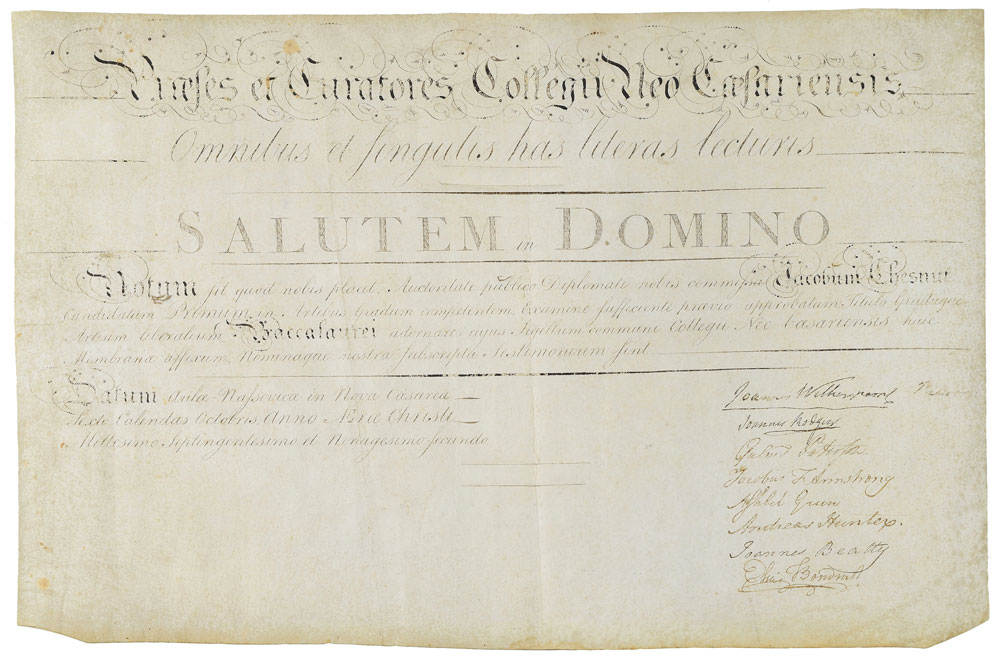 Præses et Curatores Collegii Neo Cæsariensis
Omnibus et singulis has literas lecturis
SALUTEM in DOMINO
Notum sit quod nobis placet, Auctoritate publico Diplomate nobis commissa Jacobum Chesnut
Candidatum Primum in Artibus Gradum competentem, Examine sufficiente prævio approbatum, Titulo Graduque
Artium liberalium Baccalaurei adornare cujus Sigillum commune Collegii Neo Cæsariensis huic
Membranæ affixum, Nominaque nostra subscripta Testimonium sint
Datum Aulæ Nassovicæ in Nova Cæsarea
Sexto Calendas Octobris, Anno Æræ Christi
Millesimo Septingentesimo et Nonagesimo secundo
Joannes Witherspoon
Joannes Rodgers
Jacobus F. Armstrong
Ashbel Green
Andreas Hunter.
Joannes Beatty
Elias Boudinot